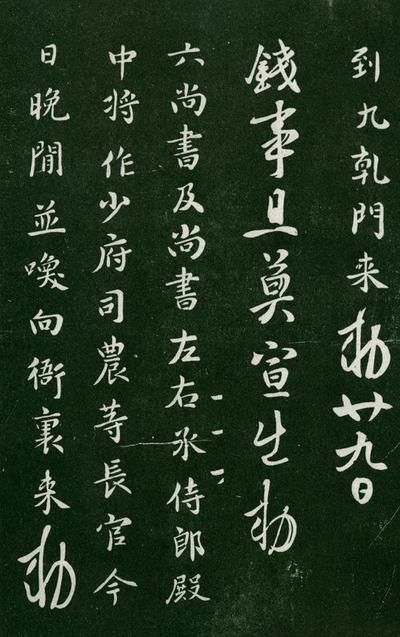 到九乹門来勅廿九日
錢事且莫宣出勅
六尚書及尚書左右丞侍郎殿
中將作少府司農等長官今
日晚閒並喚向衙裏来勅